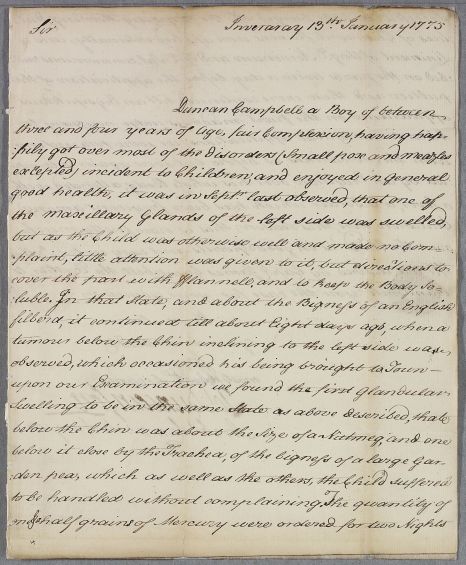 Sir
Inveraray 13th January 1775
Duncan Campbell a Boy of between
three and four years of Age, fair Complexion, having hap-
pily got over most of the disorders (Small pox and measles
excepted) incident to Children, and enjoyed in general
good health, it was in Septr last observed, that one of
the maxillary Glands of the left side was swelled,
but as the Child was otherwise well and made no Com-
plaint, little attention was given to it, but directions to
cover the part with Flannell, and to keep the Body So-
luble. In that State, and about the Bigness of an English
filberd, it continued till about Eight days ago, when a
tumour below the Chin inclining to the left side was
observed, which occasioned his being brought to Town—
upon our Examination we found the first glandular
Swelling to be in the same State as above described, that
below the Chin was about the Size of a Nutmeg, and one
below it close by the Trachea, of the bigness of a large Gar-
den pea, which as well as the others, the Child suffered
to be handled without complaining. The quantity of
half grains of Mercury were ordered for two Nights